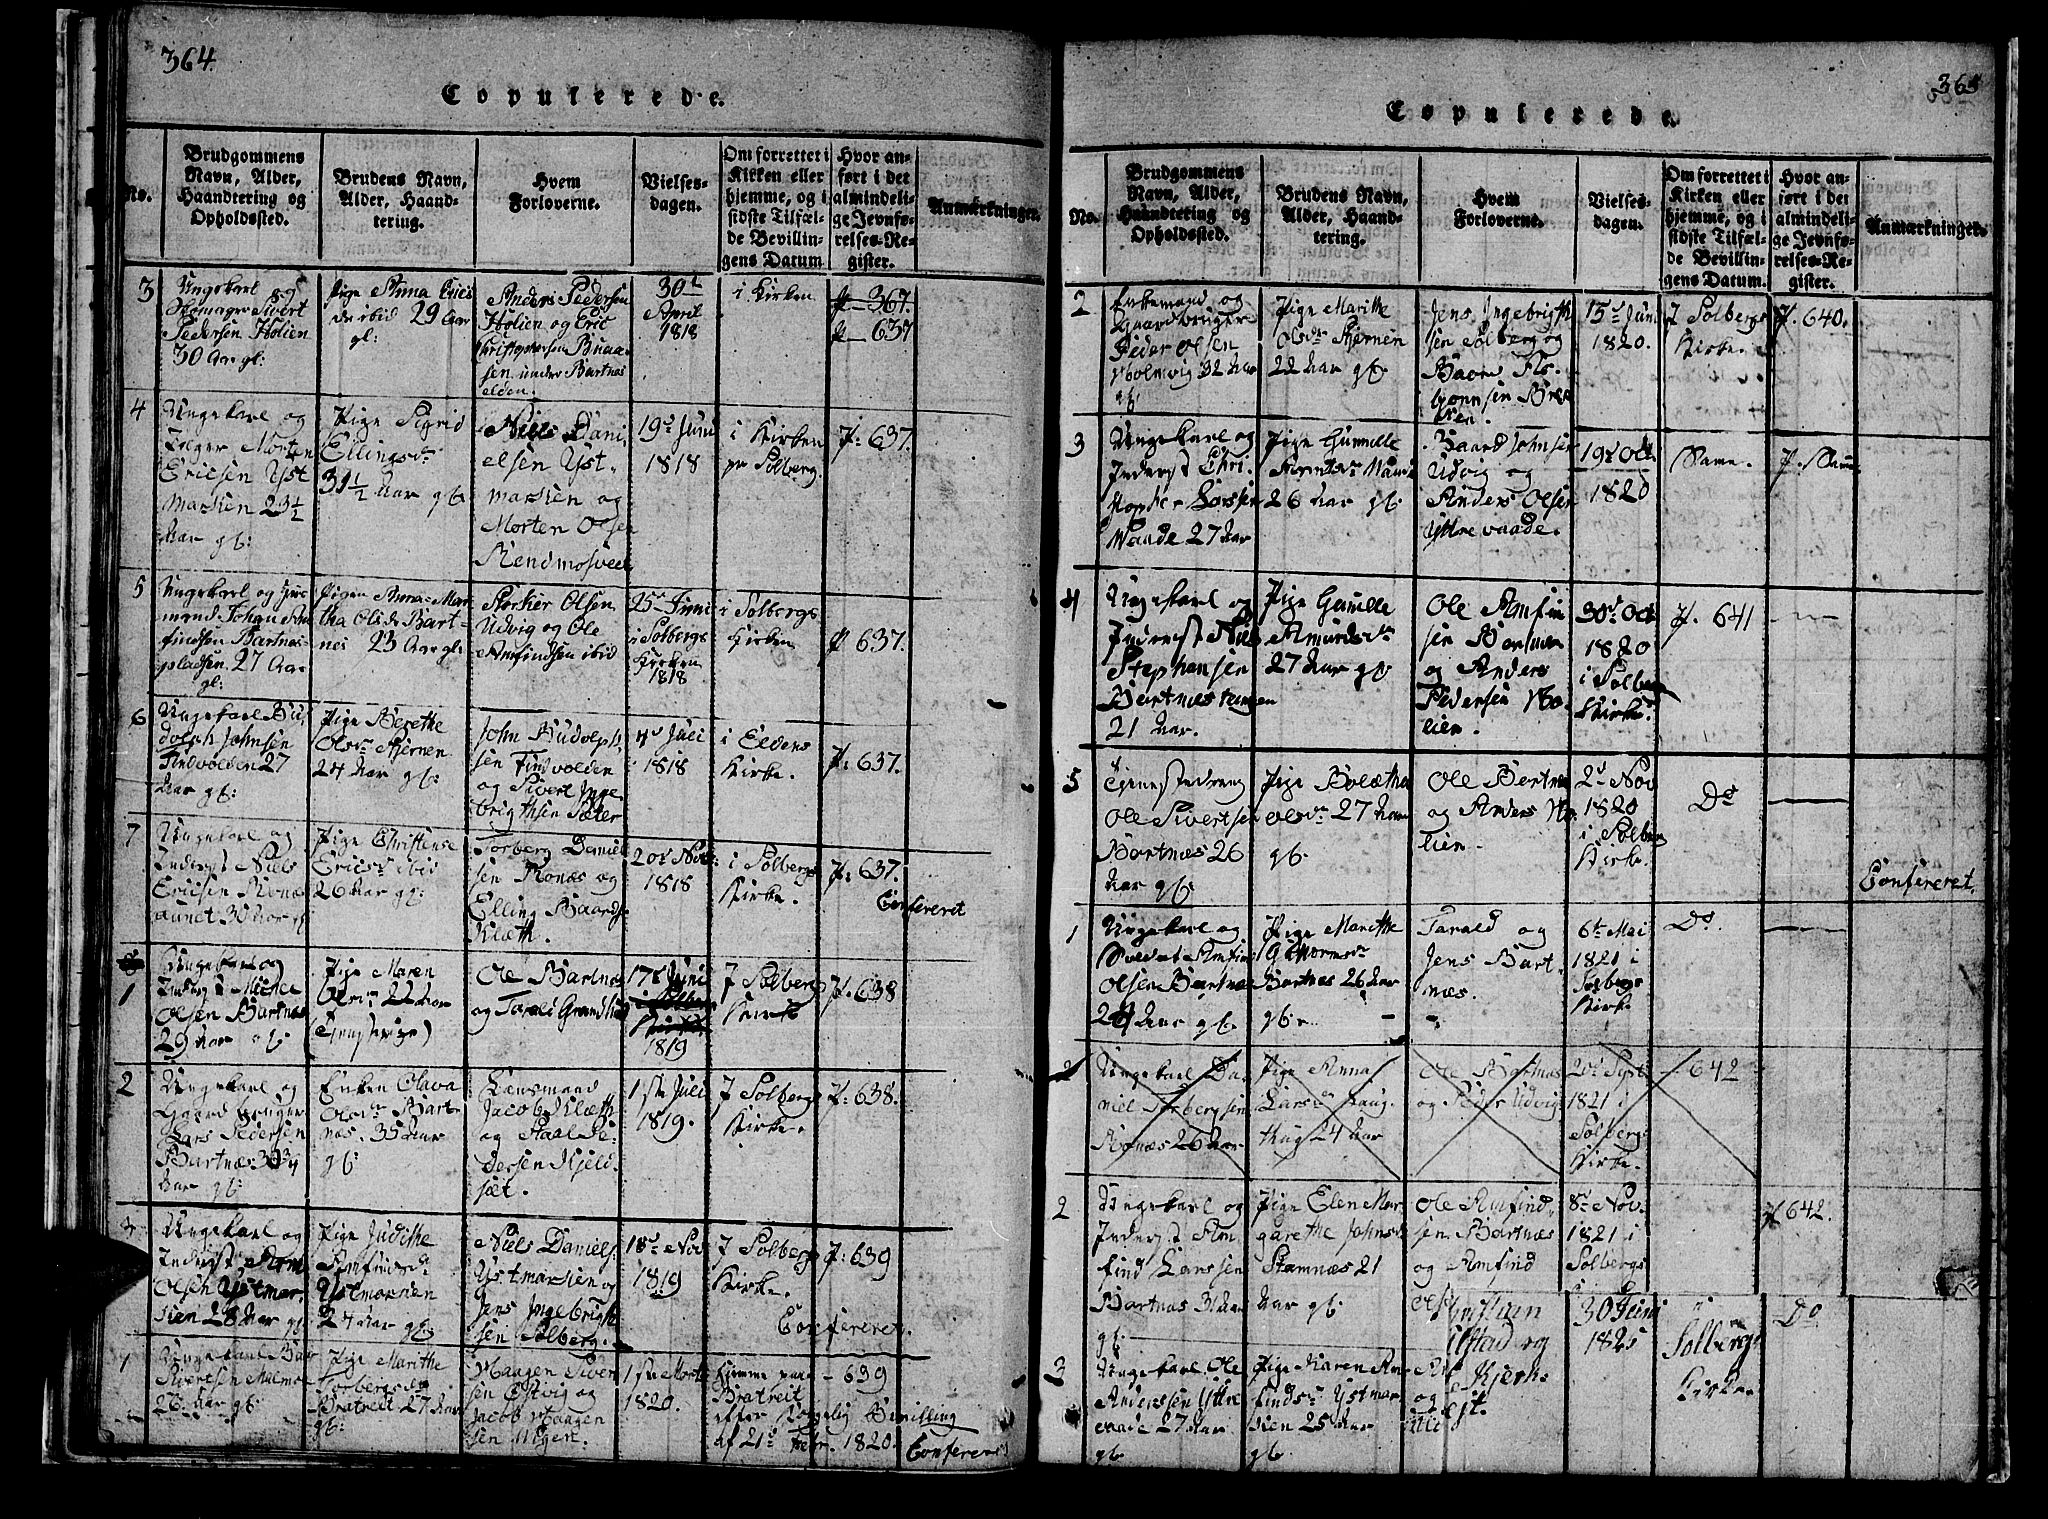 364.
Copulerede.
No.
Brudgommens
Navn, Alder,
Haandtering og
Opholdsted.
Brudens Navn,
Alder, Haand-
tering.
Hvem
Forloverne.
Vielses-
dagen.
Om forrettet i
Kirken eller
hjemme, og i
sidste Tilfæl-
de Bevillin-
gens Datum
Hvor an-
ført i det
almindeli-
ge Jevnfø-
relses-Re-
gister.
Anmærkninger.
3
Ungekarl og
Skomager Sivert
Pedersen Holien
30 Aar gl:
Pige Anna Erics
dr ibid 29 Aar
gl:
Anders Pedersen
Holien og Eric
Christophersen
sen under Bartnes
elden.
30te
April
1818
i Kirken
P 367.
P 637
4
Ungekarl og
Morten
Ericsen Yst
Marken 23½
Aar gf:
Pige Sigrid
Ellingsdr
31½ Aar gf:
Niels Dani
elsen Yst-
marken og
Morten Olsen
19de Juni
1818
i Kirken
pr Solberg.
P: 637.
5
Ungekarl og Huus
mand Johan Am
findsen Bartnes
pladsen. 27 Aar
gl:
Pigen Anna Mar
tha Olsdr Bart-
nes 23 Aar gl:
Storker Olsen
Udvig og Ole
Amfindsen ibid
25de Juni
i Solbergs
Kirken
1818
i Solbergs
Kirken
P 637.
6
Ungekarl Ru
dolph Johnsen
Tindvolden 27
Aar gf:
Pige Berethe
Olsdr Stjernen
24 Aar gf:
John Rudolph
sen Tindvolden
og Sivert Inge
brigthsen Sæter
4de Juli
1818
i Eldens
Kirke.
P: 637.
7
Ungekarl og
Inderst Niels
Ericsen Ronæs
aunet 30 Aar gf
Pige Christense
Ericsdr ibid
26 Aar gf:
Torberg Daniel
sen Ronæs og
Elling Baards
Klæth.
20de Nov:
1818
i Solbergs
Kirke.
P: 637.
Confereret
1
Ungekarl og
Inderst
Olsen Bartnes
29 Aar gf:
Pige Maren
Olsdr 22 Aar
Ole Bartnes
og
17de Juni
1819
I Solbergs
Kirke
P. 638
2
Ungekarl og
Gaardbruger
Lars Pedersen
Bartnes 30¾
Aar gf:
Enken Olava
Olsdr Bart-
næs. 35 Aar
gf:
Lænsmand
Jacob Klæth
og Staal Pe-
dersen Kjeld-
sæt.
1ste Juli
1819.
I Solbergs
Kirke.
P: 638.
3
Ungekarl og
Inderst Arn
Olsen Ystmar.
kien 28 Aar gf
Pige Judithe
Amfindsdr
Ystmarkien
24 Aar gf:
Niels Daniels.
Ystmarkien og
Jens Ingebrigth
sen Solberg.
18de Nov
1819
I Solbergs
Kirke.
P: 639
Confereret.
1
Ungekarl Baar
Sivertsen Malmoe
26. Aar gf:
Pige Marithe
Torbergsdr
Bratreit 27 Aar
gf:
Haagen Siver
sen Østvig og
Jacob Haagen
sen
1ste Marts
1820.
hjemme paa
Bratreit
efter Kongelig Bevilling
af 21de Febr. 1820.
639
Confereret
365
Copulerede.
No.
Brudgommens
Navn, Alder,
Haandtering og
Opholdssted.
Brudens Navn,
Alder, Haand-
tering.
Hvem
Forloverne.
Vielses-
dagen.
Om forrettet i
Kirken eller
hjemme, og i
sidste Tilfæl-
de Bevillin-
gens Datum.
Hvor an-
ført i det
almindeli-
ge Jevnfø-
relses-Re-
gister.
Anmærkninger.
2
Enkemand og
Gaardbruger
Peder Olsen
Holmvig 32 Aar
gf.
Pige Marithe
Olsdr Stjernen
22 Aar gf.
Jens Ingebrigth
sen Solberg og
15de Juni
1820.
I Solbergs
Kirke.
P. 640.
3
Ungekarl og
Inderst Chri-
stopher Larsen
Waade 27 Aar
Pige Gunnille
26 Aar gf:
Baard Johnsen
Udvig og
Anders Olsen
Yttrevaade.
19de Oct
1820
Same.
P. Same
4
Ungekarl og
Inderst Niels
Stephansen
Bartnestangen
21 Aar.
Pige Gunille
Amundsdr
27 Aar gf:
Ole Amfin
sen Bartnæs
og Anders
Pedersen Ho-
lien.
30te Oct
1820
i Solberg
Kirke.
P. 641
5
Tjenestedreng
Ole Sivertsen
Bartnæs 26
Aar gf:
Pige Bolethe
Olsdr 27 Aar
gf.
Ole Bartnæs
og Anders Ho-
lien.
2de Nov
1820
i Solberg
Kirke.
Do
Confereret.
1
Ungekarl og
Soldat Amfin
Olsen Bartnæs
24 Aar gf.
Pige Marithe
Guttormsdr
Bartnes 26 Aar
gf.
Tarald og
Jens Bart-
næs.
6te Mai
1821 i
Solbergs
Kirke
Do.
2
Ungekarl Da-
niel Torbergsen
Ronæs 26 Aar
Pige Anna
Larsdr Haug-
thug 24 Aar
Ole Bartnæs
og Peder Udvig
20de Sept
1821 i
Solbergs
Kirke.
642
2
Ungekarl og
Inderst Am
find Larssen
Bartnæs 31 Aar
gf.
Pige Elen Mar
garethe Johnsdr
Stamnæs 21
Aar gf.
Ole Amfind-
sen Bartnæs
og Amfind
8de Nov.
1821 i
Solbergs
P 642.
3
Ungekarl Ole
Anderssen Yttre
vaade 27 Aar
gf.
Pige Karen Am-
findsdr Ystmar
kien 25 Aar
gf.
30 Juni
1825
Solbergs
Kirke.
Do